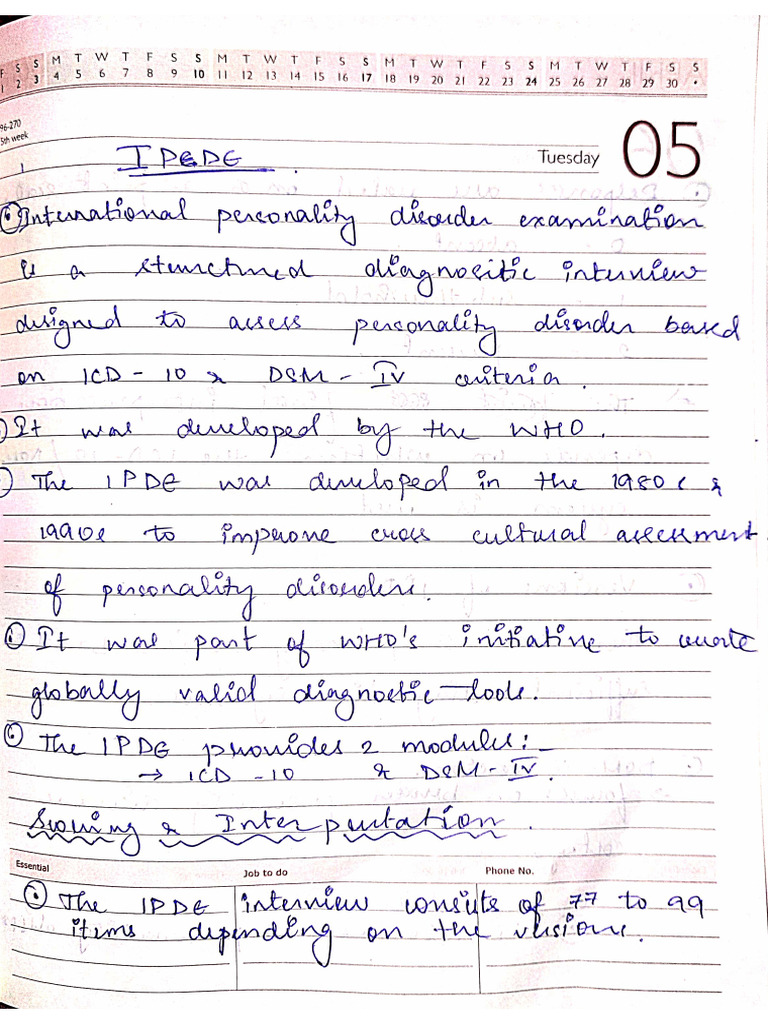 S S M T W T F S S M T W T F S S M T W T F S S M T W T F S S
1 2 3 4 5 6 7 8 9 10 11 12 13 14 15 16 17 18 19 20 21 22 23 24 25 26 27 28 29 30
96-270
5th week
Tuesday 05
IPEDE.
International personality disorder examination
is a structured diagnositic interview
designed to assess personality disorder based
on ICD-10 & DSM-IV criteria.
It was developed by the WHO.
The IPDE was developed in the 1980s &
1990s to improve cross cultural assessment
of personality disorders.
It was part of WHO's initiative to create
globally valid diagnostic tools.
The IPDE provides 2 modules:-
→ ICD-10 & DSM-IV.
Scoring & Interpretation.
Essential Job to do Phone No.
The IPDE interview consits of 77 to 99
items depending on the versions.